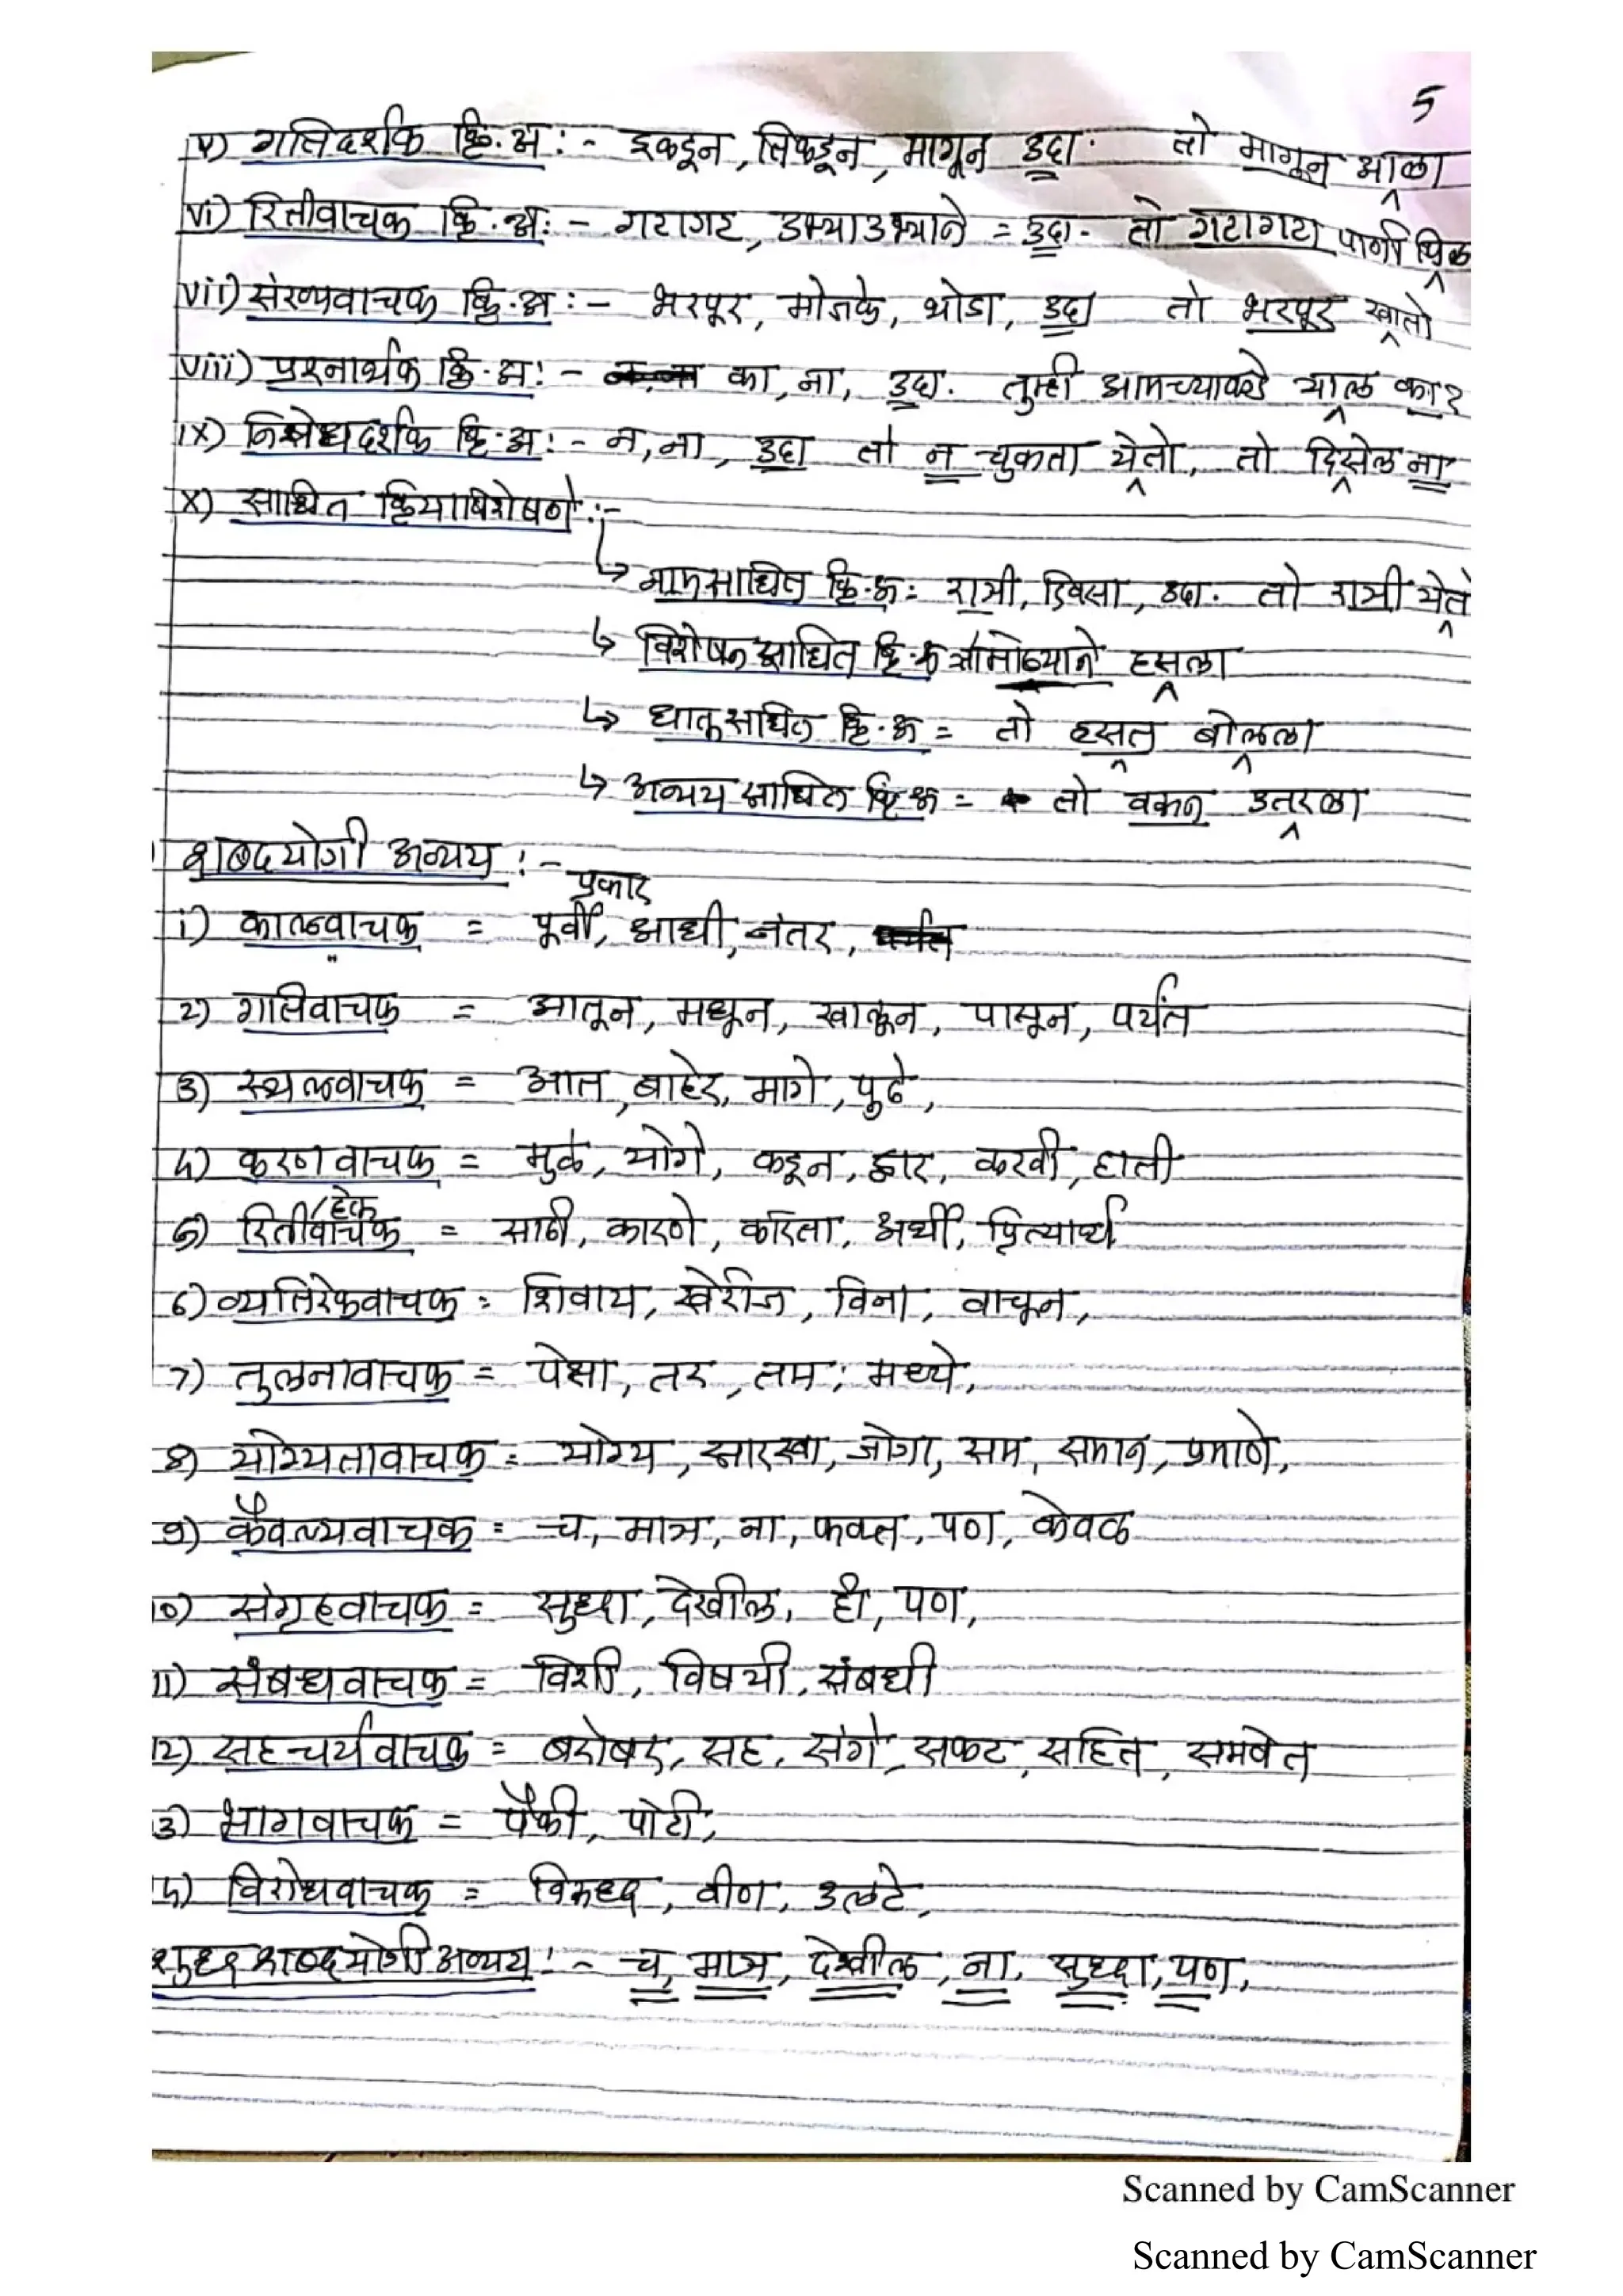 5
v) गतिदर्शक क्रि.अ :- इकडून, तिकडून, मागून उदा. तो मागून आला
vi) रितीवाचक क्रि.अ: - गटागट, उभ्याउभ्याने = उदा. तो गटागटा पाणी पिल
vii) संख्यवाचक क्रि.अ :- भरपूर, मोजके, थोडा, उदा तो भरपूर खातो
viii) प्रश्नार्थक क्रि.अ: - का, ना, उदा. तुम्ही आमच्याकडे याल का?
ix) निषेधदर्शक क्रि.अ: - न, ना, उदा तो न चुकता येतो, तो दिसेल ना
x) साधित क्रियाविशेषणे :-
↳ नामसाधित क्रि.अ: रात्री, दिवसा, उदा. तो रात्री येतो
↳ विशेषनसाधित क्रि.अ तो मोठ्याने हसला
↳ धातूसाधित क्रि.अ = तो हसत बोलला
↳ अव्यय साधित क्रि.अ = तो वरून उतरला
शब्दयोगी अव्यय :-
प्रकार
i) काळवाचक = पूर्वी, आधी, नंतर,
2) गतिवाचक = आतून, मधून, खालून, पासून, पर्यंत
3) स्थळवाचक = आत, बाहेर, मागे, पुढे,
4) करणवाचक = मुळे, योगे, कडून, द्वारे, करवी, हाती
5) रितीवाचक /हेतू = साठी, कारणे, करिता, अर्थी, प्रित्यार्थ
6) व्यतिरेकवाचक = शिवाय, खेरीज, विना, वाचून,
7) तुलनावाचक = पेक्षा, तर, तम, मध्ये,
8) योग्यतावाचक = योग्य, सारखा, जोगा, सम, समान, प्रमाणे,
9) कैवल्यवाचक = च, मात्र, ना, फक्त, पण, केवळ
10) संग्रहवाचक = सुध्दा, देखील, ही, पण,
11) संबंधवाचक = विशी, विषयी, संबधी
12) सहचर्यवाचक = बरोबर, सह, संगे, सकट, सहित, समवेत
3) भागवाचक = पैकी, पोटी,
4) विरोधवाचक = विरुध्द, वीण, उलटे,
शुध्द शब्दयोगी अव्यय :- च, मात्र, देखील, ना, सुध्दा, पण,
Scanned by CamScanner
Scanned by CamScanner